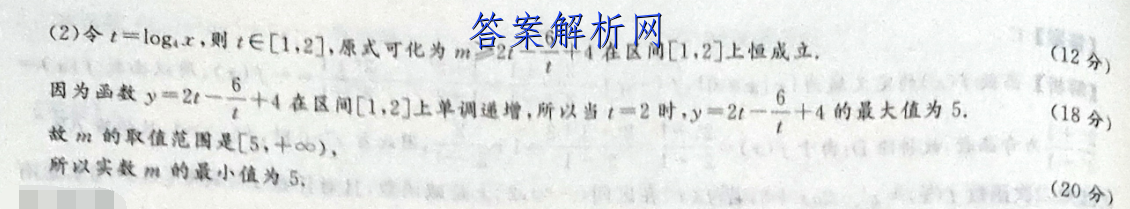 答案解析网
(2)令 t=log₄x,则 t∈[1,2],原式可化为 m≥2t-6/t+4 在区间[1,2]上恒成立. (12分)
因为函数 y=2t-6/t+4 在区间[1,2]上单调递增,所以当 t=2 时,y=2t-6/t+4 的最大值为 5. (18分)
故 m 的取值范围是[5,+∞),
所以实数 m 的最小值为 5. (20分)